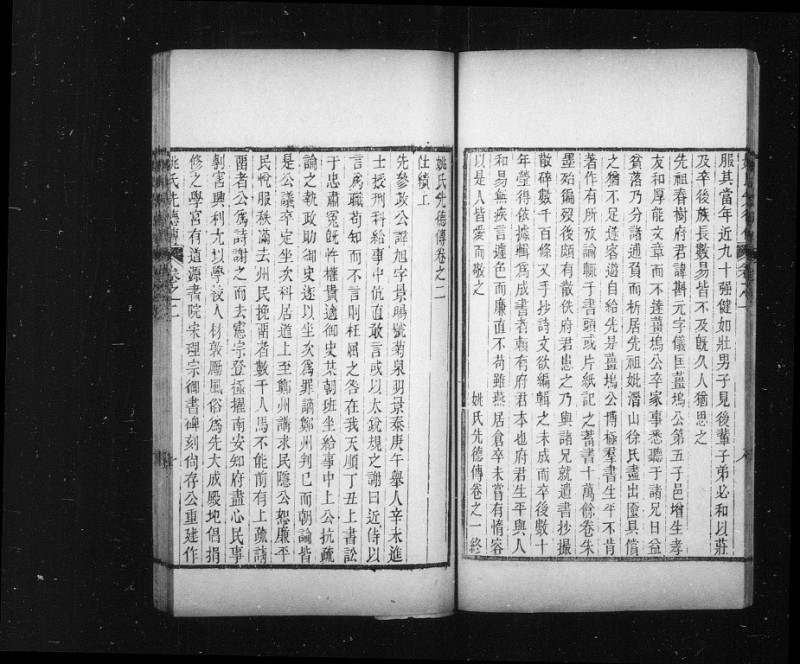 服其當年近九十强健如壯男子見後輩子弟必和以莊
及卒後族長數易皆不及旣久人猶思之
先祖春樹府君諱斟元字儀匡薑塢公第五子邑增生孝
友和厚能文章而不達薑塢公卒家事悉聽于諸兄日益
貧落乃分諸逋負而析居先祖妣潛山徐氏盡出匳具償
之猶不足逹客遊自給先是薑塢公博極羣書生平不肯
著作有所攷論輒于書頭或片紙記之蓄書十萬餘卷朱
墨殆徧歿後頗有散佚府君患之乃與諸兄就遺書抄撮
散碎數千百條又手抄詩文欲編輯之未成而卒後數十
年瑩得依據輯爲成書者賴有府君本也府君生平與人
和易無疾言遽色而廉直不苟雖燕居倉卒未嘗有惰容
以是人皆愛而敬之
姚氏先德傳卷之一終
姚氏先德傳卷之二
仕績上
先參政公諱旭字景暘號菊泉明景泰庚午舉人辛未進
士授刑科給事中伉直敢言或以太銳規之謝曰近侍以
言爲職苟知而不言則枉屈之咎在我天順丁丑上書訟
于忠肅冤忤權貴適御史某朝班坐給事中上公抗疏
論之執政助御史遂以坐次爲罪謫鄭州判已而朝論皆
是公議卒定坐次科居道上至鄭州講求民隱公恕廉平
民悅服秩滿去州民挽畱者數千人馬不能前有上疏請
畱者公爲詩謝之而去憲宗登極擢南安知府盡心民事
剔害興利尤以學校人材敦厲風俗爲先大成殿圮倡捐
修之學宮有道源書院宋理宗御書碑刻尙存公重建作
姚氏先德傳 卷之二